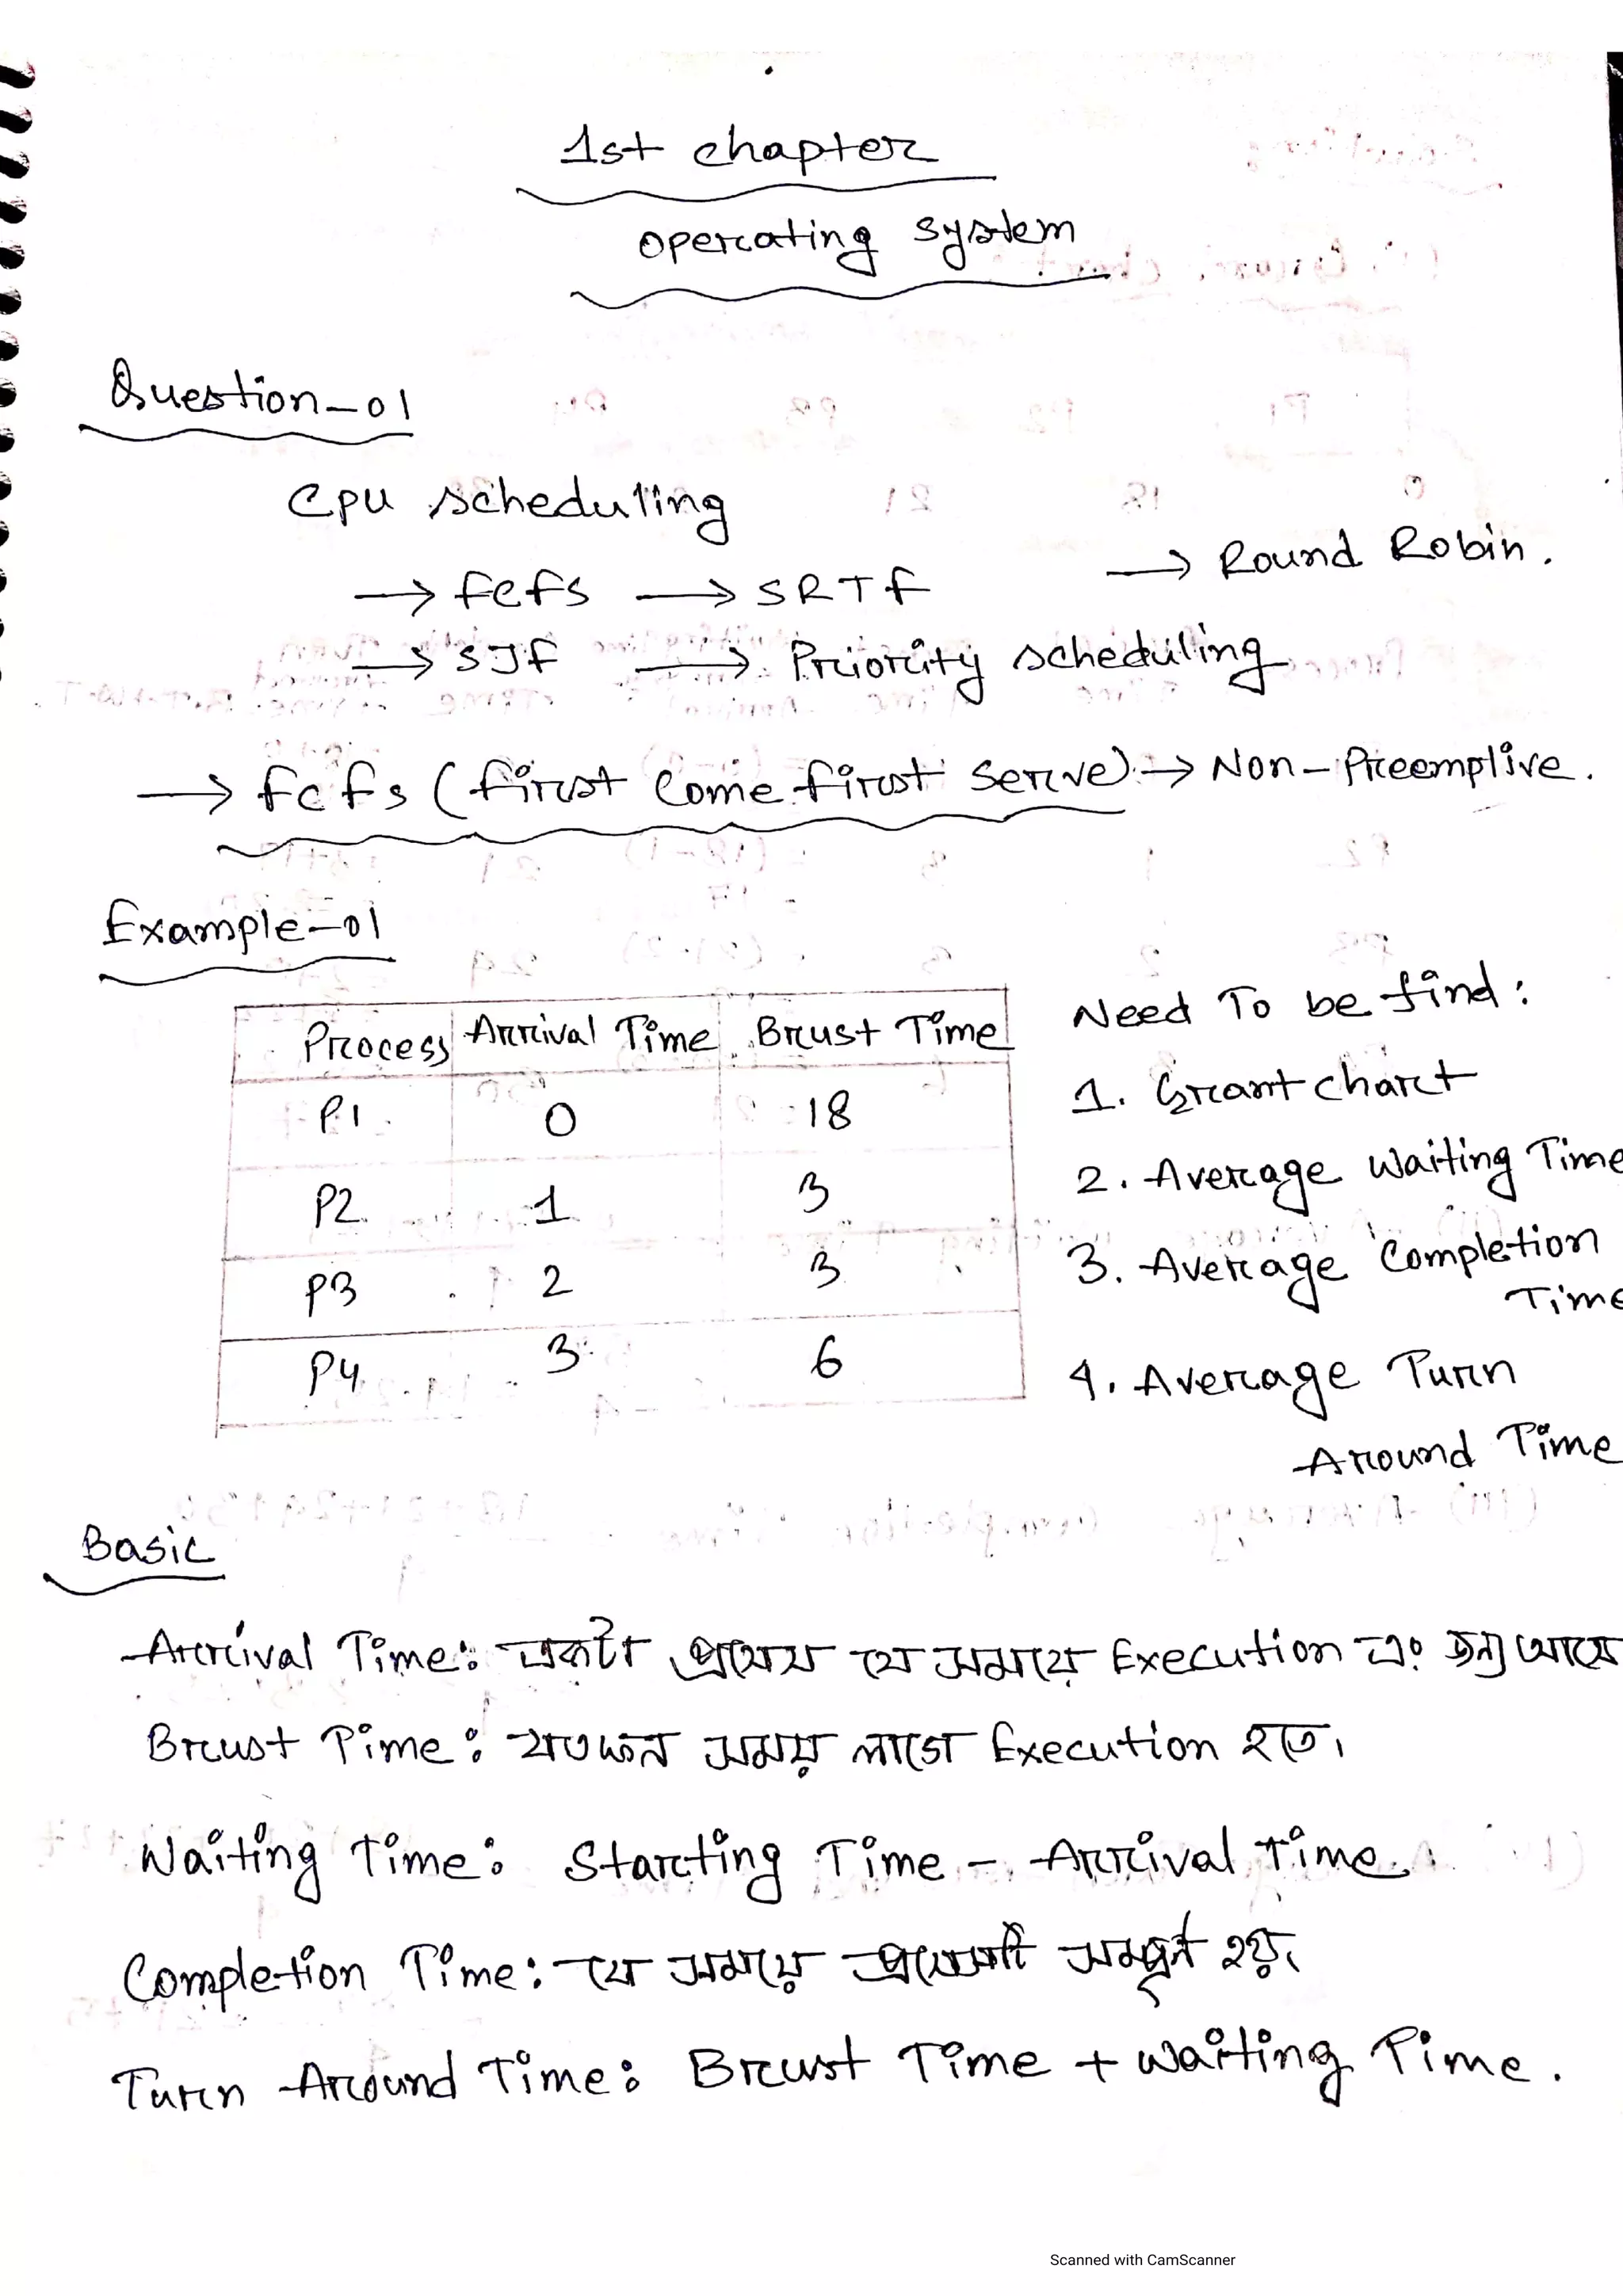 1st chapter
operating system
Question-01
Cpu scheduling
→ fcfs → SRTf → Round Robin.
→ SJf → Priority scheduling
→ fcfs (first Come first Serve) → Non-Preemplive.
Example-01
Process Arrival Time Brust Time
P1 0 18
P2 1 3
P3 2 3
P4 3 6
Need To be find:
1. Grant chart
2. Average Waiting Time
3. Average Completion
Time
4. Average Turn
Around Time
Basic
Arrival Time: একটা প্রসেস যে সময়ে Execution এর জন্য আসে
Brust Time: যতক্ষন সময় লাগে Execution হতে।
Waiting Time: Starting Time - Arrival Time.
Completion Time: যে সময়ে প্রসেসটি সম্পূর্ন হয়।
Turn Around Time: Brust Time + Waiting Time.
Scanned with CamScanner